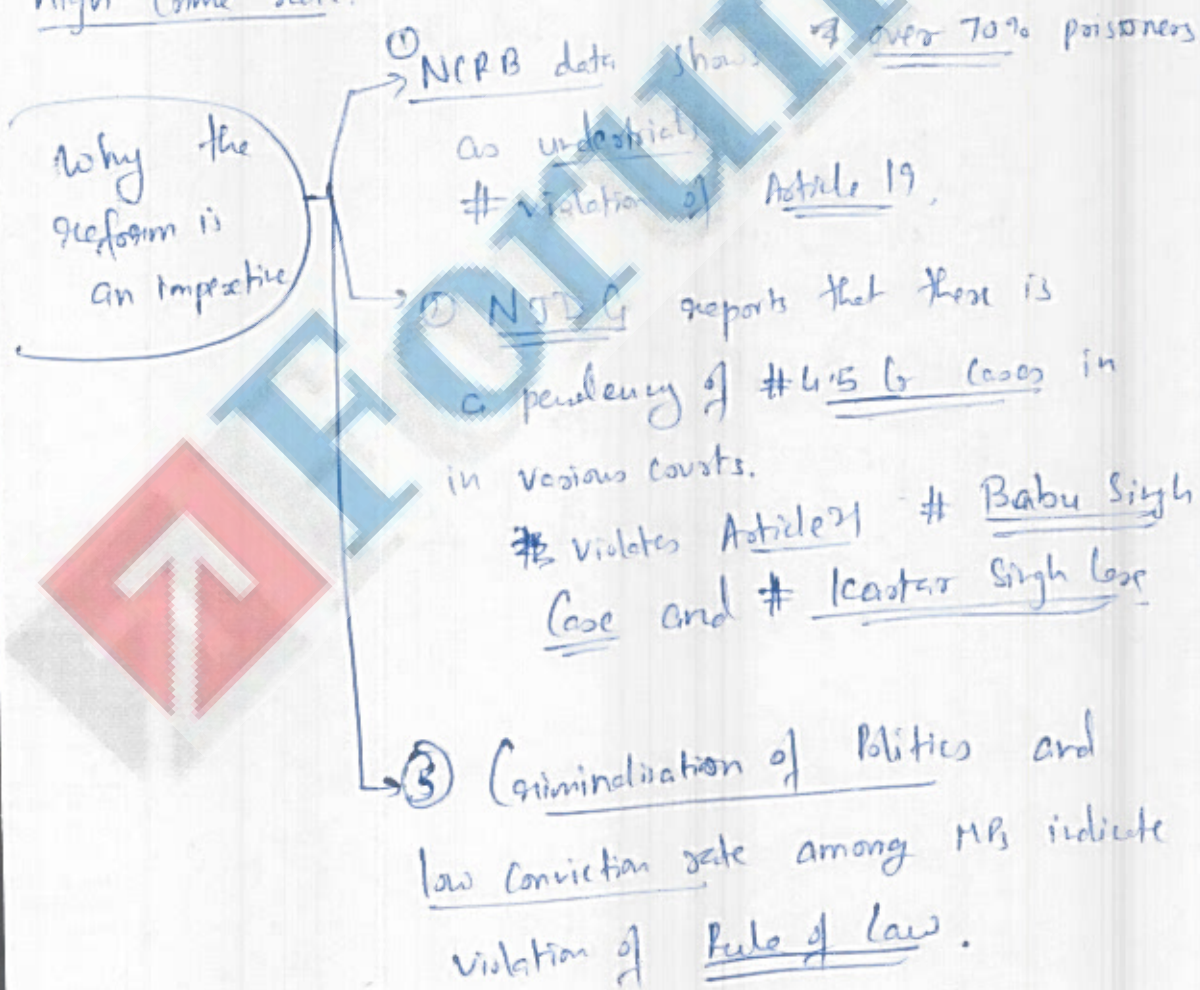 High Crime
Why the
reform is
an imperative
① NCRB data shows # over 70% prisoners
as undertrials
# violation of Article 19.
② NJDG reports that there is
a pendency of # 4.5 Cr Cases in
in various courts.
# violates Article 21 # Babu Singh
Case and # Kartar Singh Case
③ Criminalisation of Politics and
low conviction rate among MPs indicate
violation of Rule of Law.
Forum